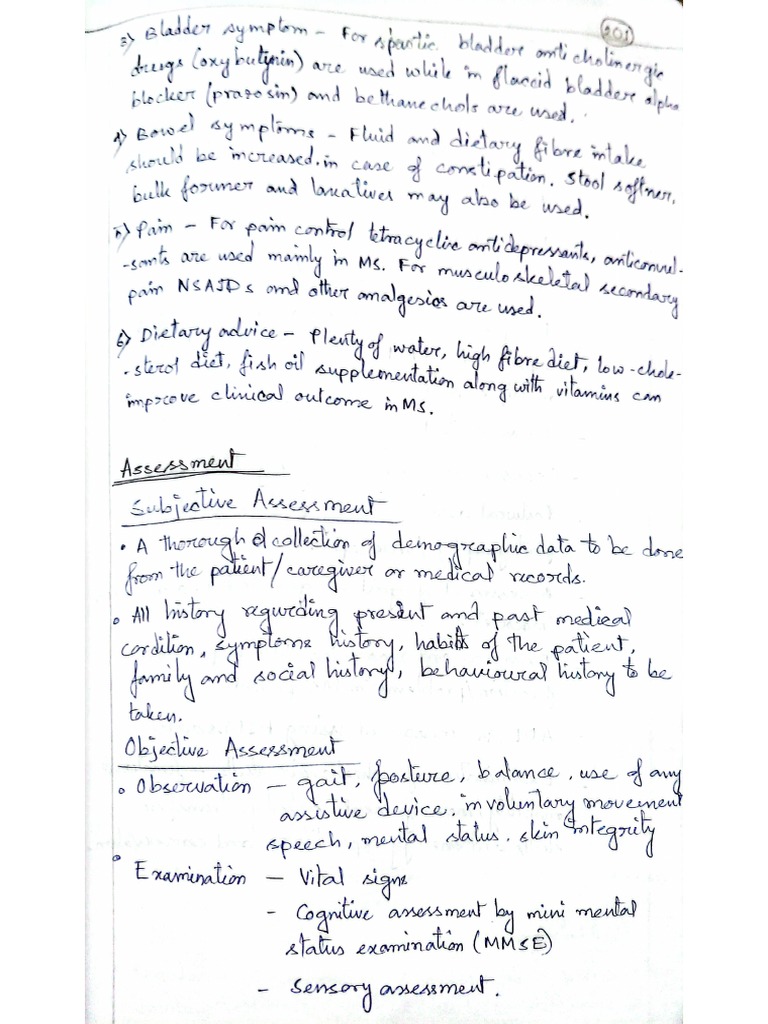 201
3) Bladder symptom - For spastic bladdere anticholinergic
drugs (oxybutynin) are used while in flaccid bladdere alpha
blocker (prazosin) and bethanechols are used.
4) Bowel symptoms - Fluid and dietary fibre intake
should be increased. in case of constipation. Stool softner,
bulk forumer and laxatives may also be used.
5) Pain - For pain control tetracyclic antidepressants, anticonvul-
-sants are used mainly in MS. For musculoskeletal secondary
pain NSAIDs and other analgesics are used.
6) Dietary advice - Plenty of water, high fibre diet, low-chole-
-sterol diet, fish oil supplementation along with vitamins can
improve clinical outcome in MS.
Assessment
Subjective Assessment
• A thorough collection of demographic data to be done
from the patient/caregiver or medical records.
• All history regurding present and past medical
condition, symptoms history, habits of the patient,
family and social history, behavioural history to be
taken.
Objective Assessment
• Observation - gait, posture, balance, use of any
assistive device. involuntary movement
speech, mental status. skin integrity
• Examination - Vital signs
- Cognitive assessment by mini mental
status examination (MMSE)
- Sensory assessment.